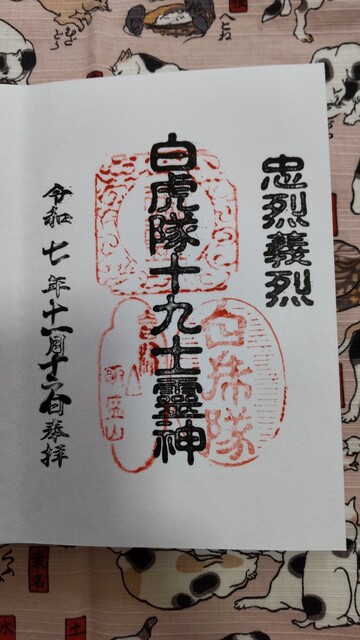 忠烈義烈
白虎隊十九士霊神
白虎隊
飯盛山
令和七年十一月十二日奉拝